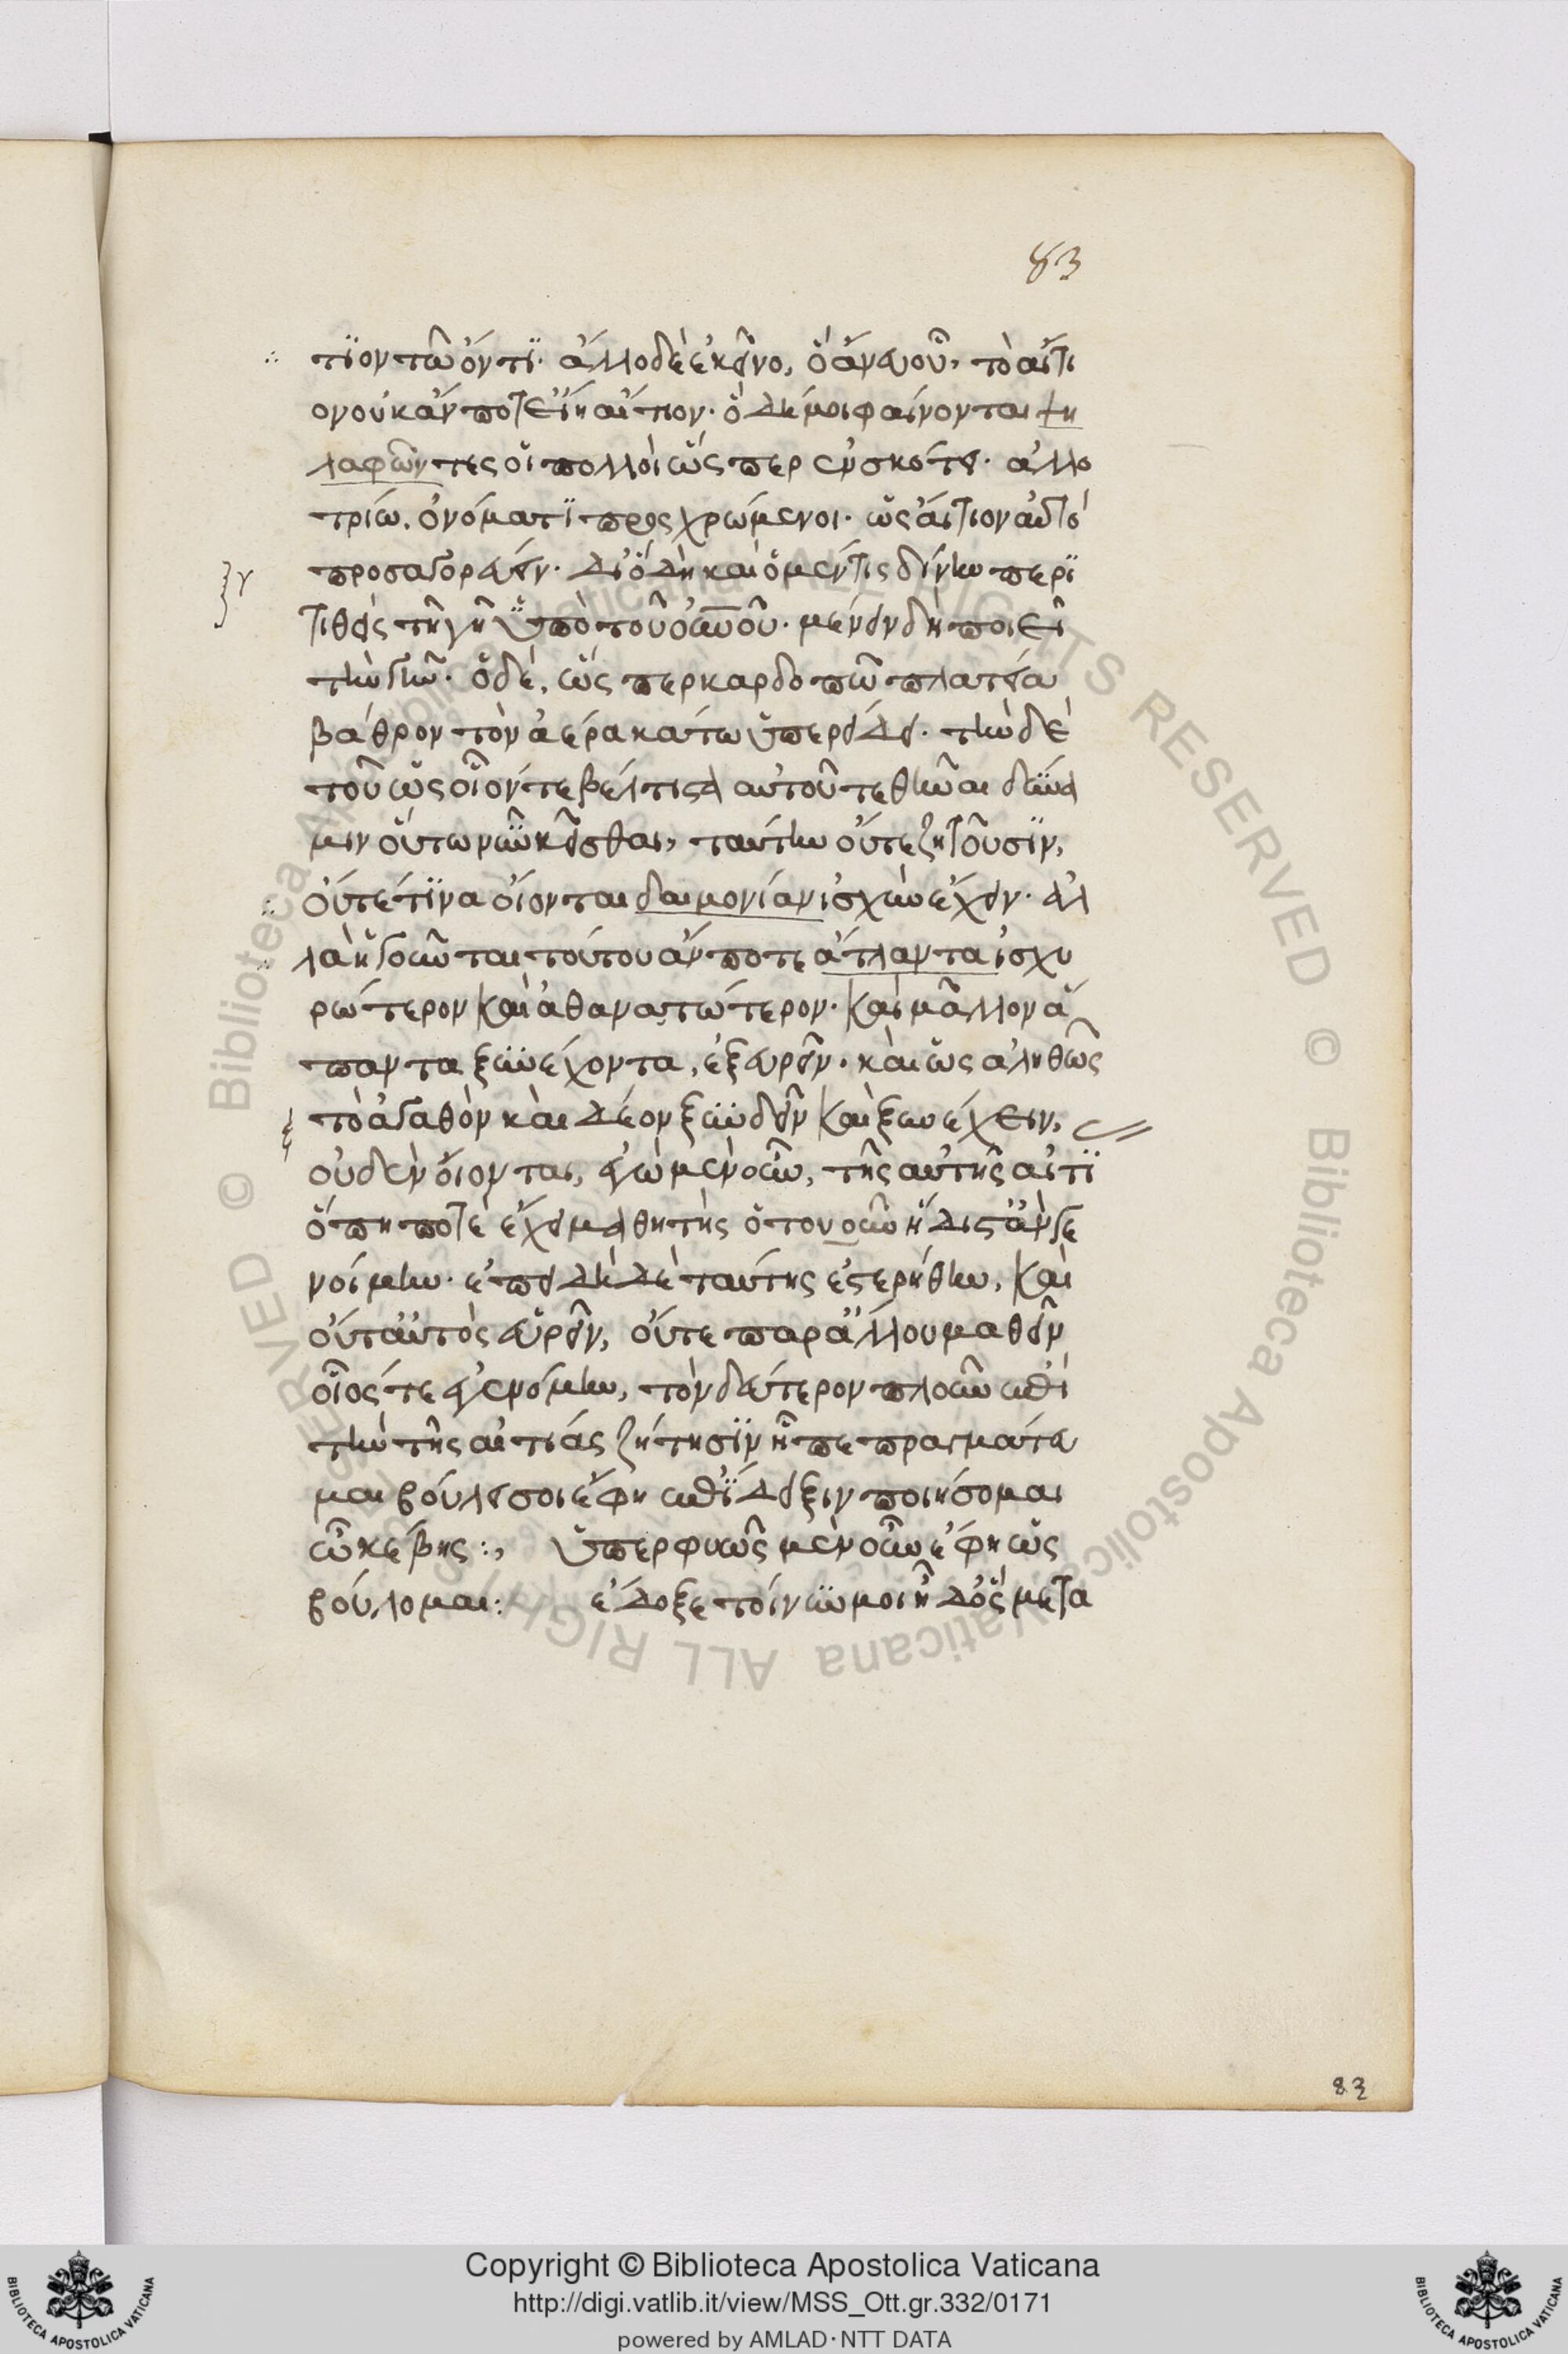 83
τϊον τῶ ὄντϊ· ἄλλο δὲ ἐκεῖνο, ὅ ἄνευ οὗ, τὸ αἴτι
ον οὐκ ἄν ποτ' εἴη αἴτιον· ὅ δή μοι φαίνονται ψη
λαφῶντες οἱ πολλοὶ ὥς περ ἐν σκότει· ἀλλο
τρίω, ὀνόματϊ προσχρώμενοι· ὡς αἴτιον αὐτὸ
προσαγορεύειν· διὸ δὴ καὶ ὁ μέν τις δίνην περϊ
τιθεὶς τῆ γῆ ὑπὸ τοῦ οὐνοῦ· μένειν δὴ ποιεῖ
τὴν γῆν· ὁ δὲ, ὥς περ καρδόπω πλατεία
βάθρον τὸν ἀέρα κάτω ὑπερείδει· τὴν δὲ
τοῦ ὡς οἷόν τε βέλτιστα αὐτοῦ τεθῆναι δύνα
μιν οὕτω νῦν κεῖσθαι, ταύτην οὔτε ζητοῦσϊν,
οὔτε τϊνὰ οἴονται δαιμονίαν ἰσχὺν ἔχειν· ἀλ
λὰ ἡγοῦνται τούτου ἄν ποτε ἄτλαντα ἰσχυ
ρώτερον καὶ ἀθανατώτερον· καὶ μᾶλλον ἅ
παντα ξυνέχοντα, ἐξευρεῖν· καὶ ὡς ἀληθῶς
τὸ ἀγαθὸν καὶ δέον ξυνδεῖν καὶ ξυνέχειν,
οὐδὲν οἴονται, ἐγὼ μὲν οὖν, τῆς αὐτῆς αἰτϊ
ὅπη ποτὲ ἔχει μαθητὴς ὁτουοῦν ἥδιστ' ἂν γε
νοίμην· ἐπειδὴ δὲ ταύτης ἐστερήθην, καὶ
οὔτ' αὐτὸς εὑρεῖν, οὔτε παρ' ἄλλου μαθεῖν
οἷός τε ἐγενόμην, τὸν δεύτερον πλοῦν ἐπὶ
τὴν τῆς αἰτίας ζήτησϊν ἧ πεπραγμάτευ
μαι βούλει σοι ἔφη ἐπίδειξιν ποιήσομαι
ὦ κέβης :, ὑπερφυῶς μὲν οὖν ἔφη ὡς
βούλομαι: ἔδοξε τοίνυν μοι ἦ δ' ὃς μετὰ
83
Copyright © Biblioteca Apostolica Vaticana
http://digi.vatlib.it/view/MSS_Ott.gr.332/0171
powered by AMLAD·NTT DATA